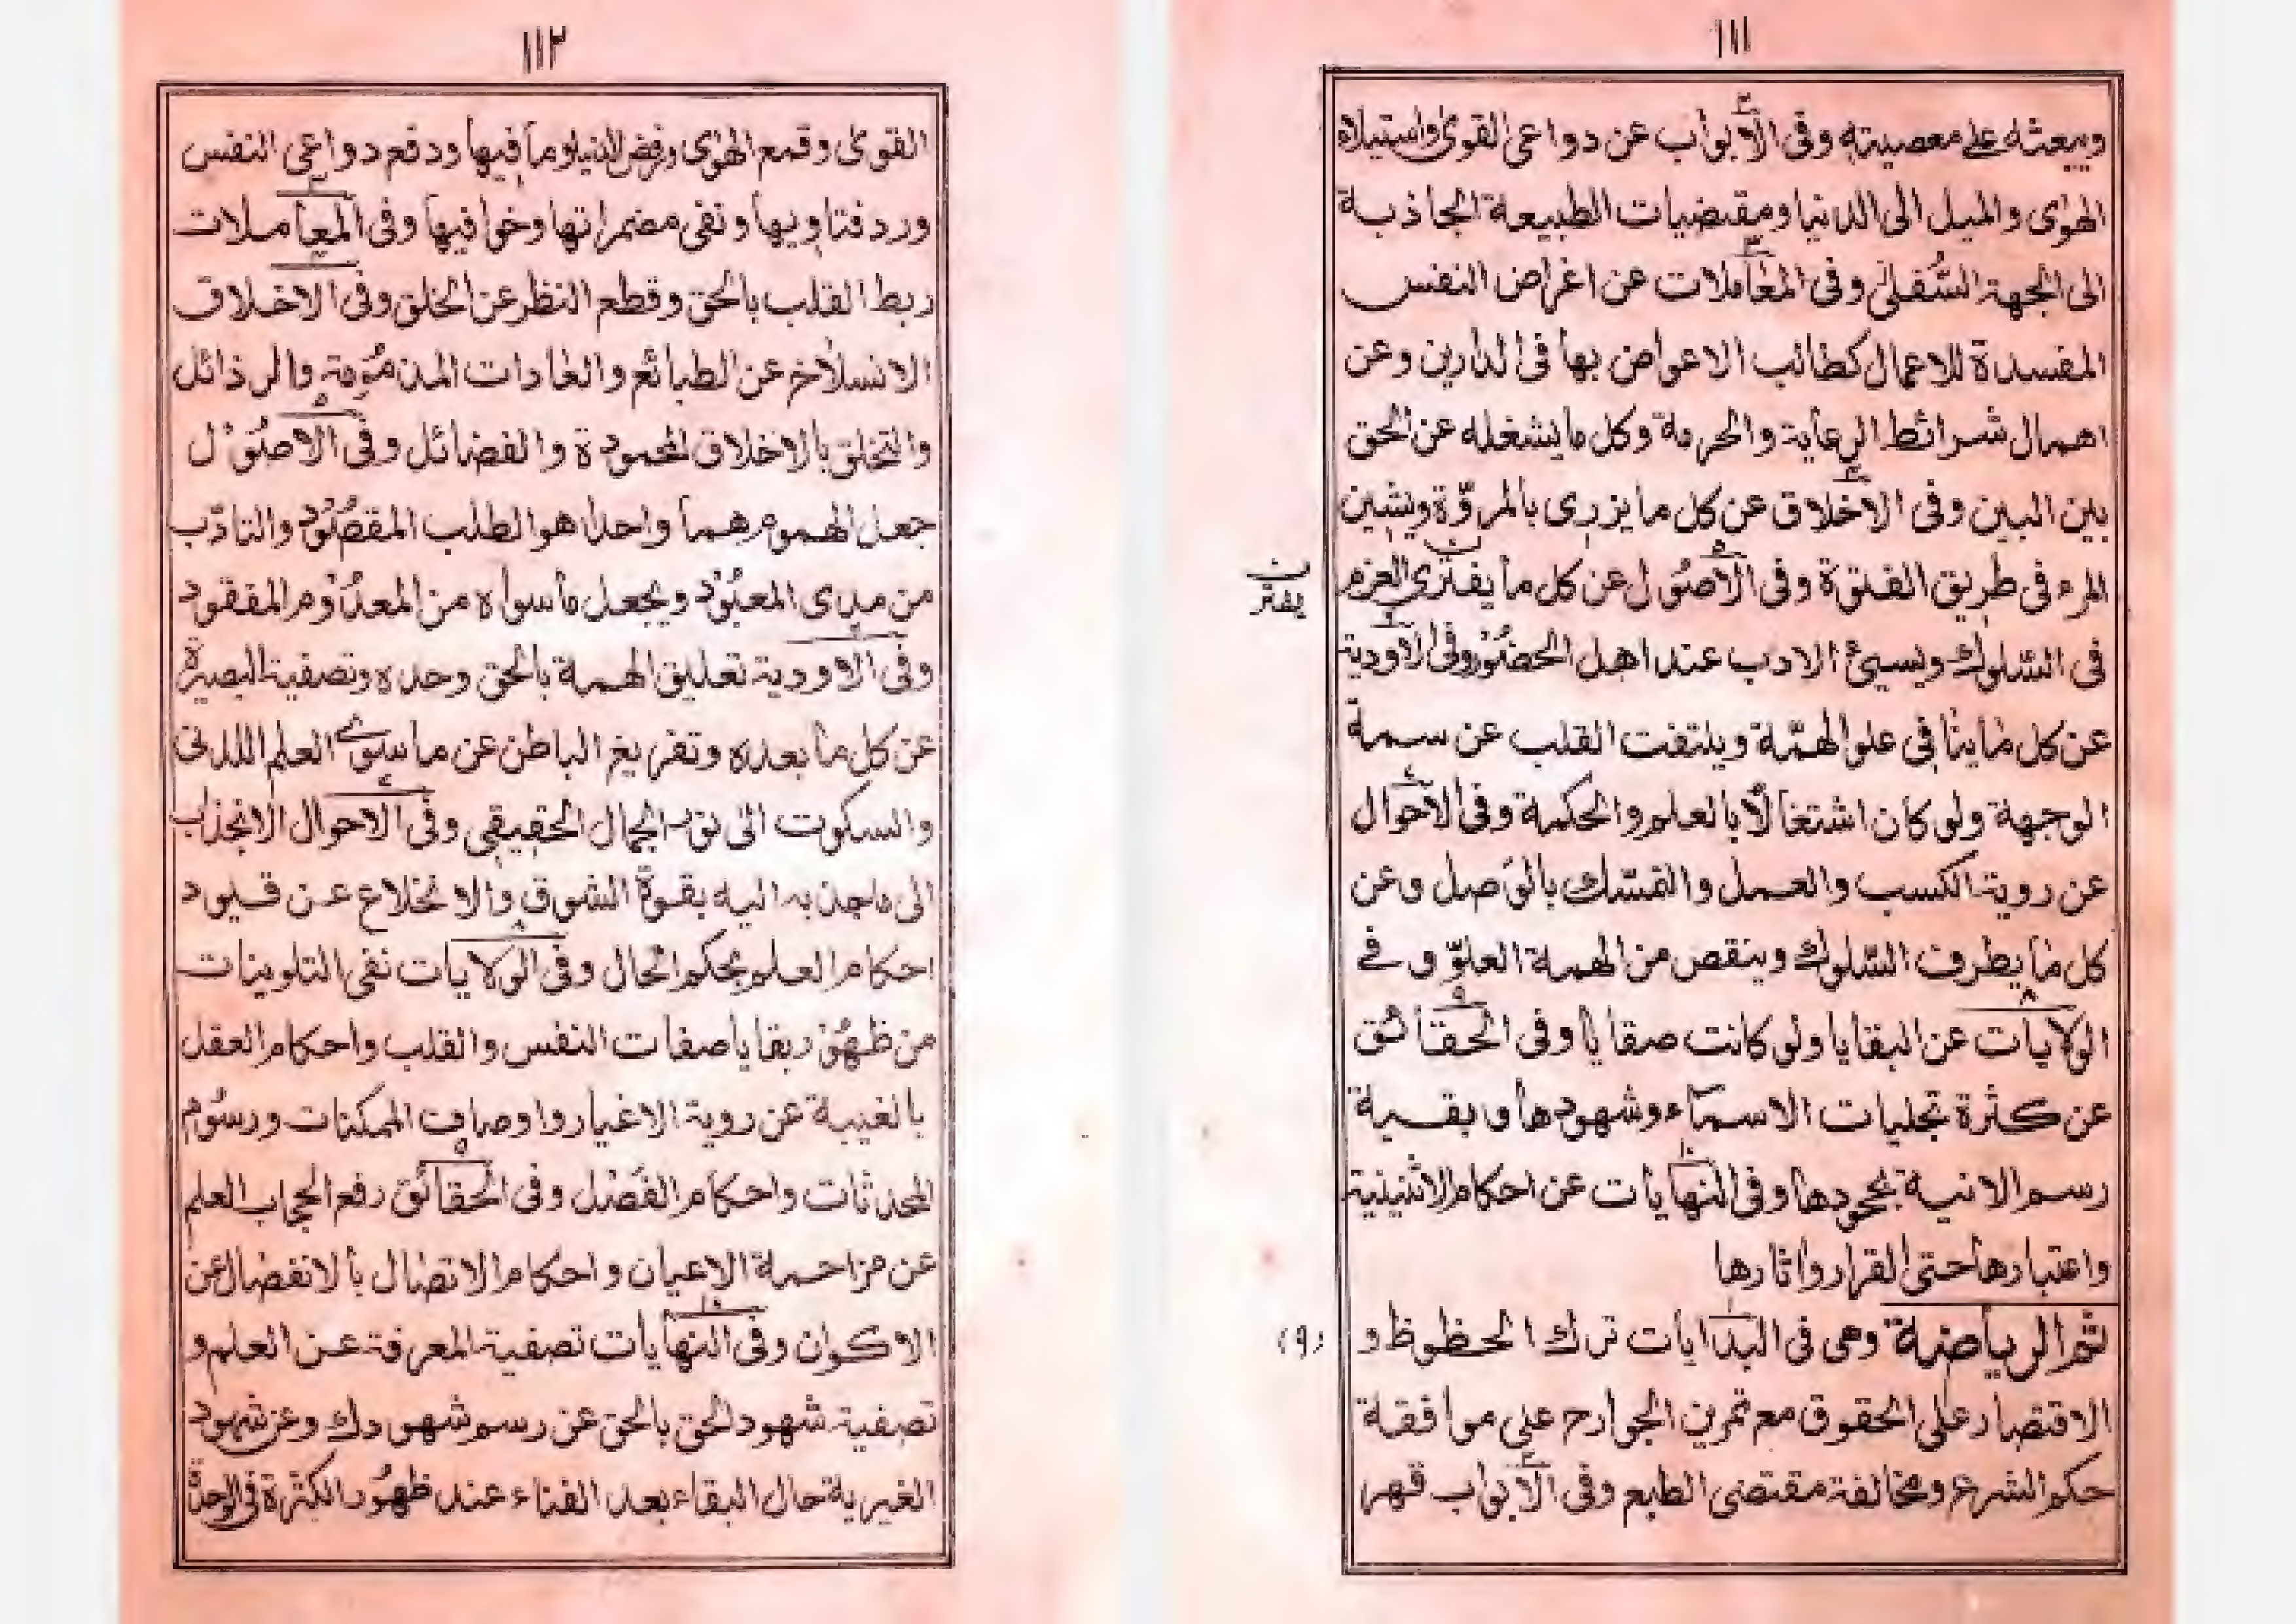 ١١١
ويبعثه على معصيته وفى الأبواب عن دواعى القوى واستيلاء
الهوى والميل الى الدنيا ومقتضيات الطبيعة الجاذبة
الى الجهة السُّفلى وفى المعاملات عن اغراض النفس
المفسدة للاعمال كطالب الاعواض بها فى الدارين وعن
اهمال شرائط الرعاية والحرمة وكل ما يشغله عن الحق
بين البين وفى الاخلاق عن كل ما يزرى بالمروّة ويشين
المرء فى طريق الفتوة وفى الأصُول عن كل ما يفترى العزم
يفتر
فى السّلوك ويسيئ الادب عند اهل الحضُور وفى الاودية
عن كل ما ينافى علو الهمّة ويلتفت القلب عن سمة
الوجهة ولو كان اشتغالًا بالعلم والحكمة وفى الاحوال
عن روية الكسب والعمل والتمسّك بالوَصل وعن
كل ما يطرف السّلوك وينقص من الهمة العلوّ و فے
الولايات عن البقايا ولو كانت صفايا وفى الحقائق
عن كثرة تجليات الاسمآء وشهودها و بقية
رسم الانية بجحودها وفى النهايات عن احكام الاثنينية
واعتبارها حتى القرار واثارها
(٩)
ثم الرياضة وهى فى البدايات ترك الحظوظ و
الاقتصار على الحقوق مع تمرين الجوارح على موافقة
حكم الشرع ومخالفة مقتضى الطبع وفى الابواب قهر
١١٢
القوى وقمع الهوى ورفض الدنيا وما فيها ودفع دواعى النفس
ورد فتاويها ونفى مضمراتها وخوافيها وفى المعاملات
ربط القلب بالحق وقطع النظر عن الخلق وفى الاخلاق
الانسلاخ عن الطبائع والعادات المذمُومة والرذائل
والتخلق بالاخلاق المحمودة والفضائل وفى الاصُوْل
جعل الهموم هما واحدا هو الطلب المقصُوْد والتادّب
من مدى المعبُوْد ويجعل ما سواه من المعدُوْم المفقود
وفى الاوودية تعليق الهمة بالحق وحده وتصفية البصيرة
عن كل ما بعده وتفريغ الباطن عن ما سوى العلم اللدنى
والسكوت الى نور الجمال الحقيقى وفى الاحوال الانجذاب
الى ماجذبه اليه بقوة الشوق والانخلاع عن قيود
احكام العلم بحكم الحال وفى الولايات نفى التلوينات
من ظهُوْر بقايا صفات النفس والقلب واحكام العقل
بالغيبة عن روية الاغيار واوصاف الممكنات ورسُوم
المحدثات واحكام الفَصْل وفى الحقائق رفع الحجاب العلم
عن مزاحمة الاعيان واحكام الاتصال بالانفصال عن
الاكوان وفى النهايات تصفية المعرفة عن العلم و
تصفية شهود الحق بالحق عن رسم شهودك وعن شهود
الغيرية حال البقاء بعد الفناء عند ظهُور الكثرة فى الوحدة